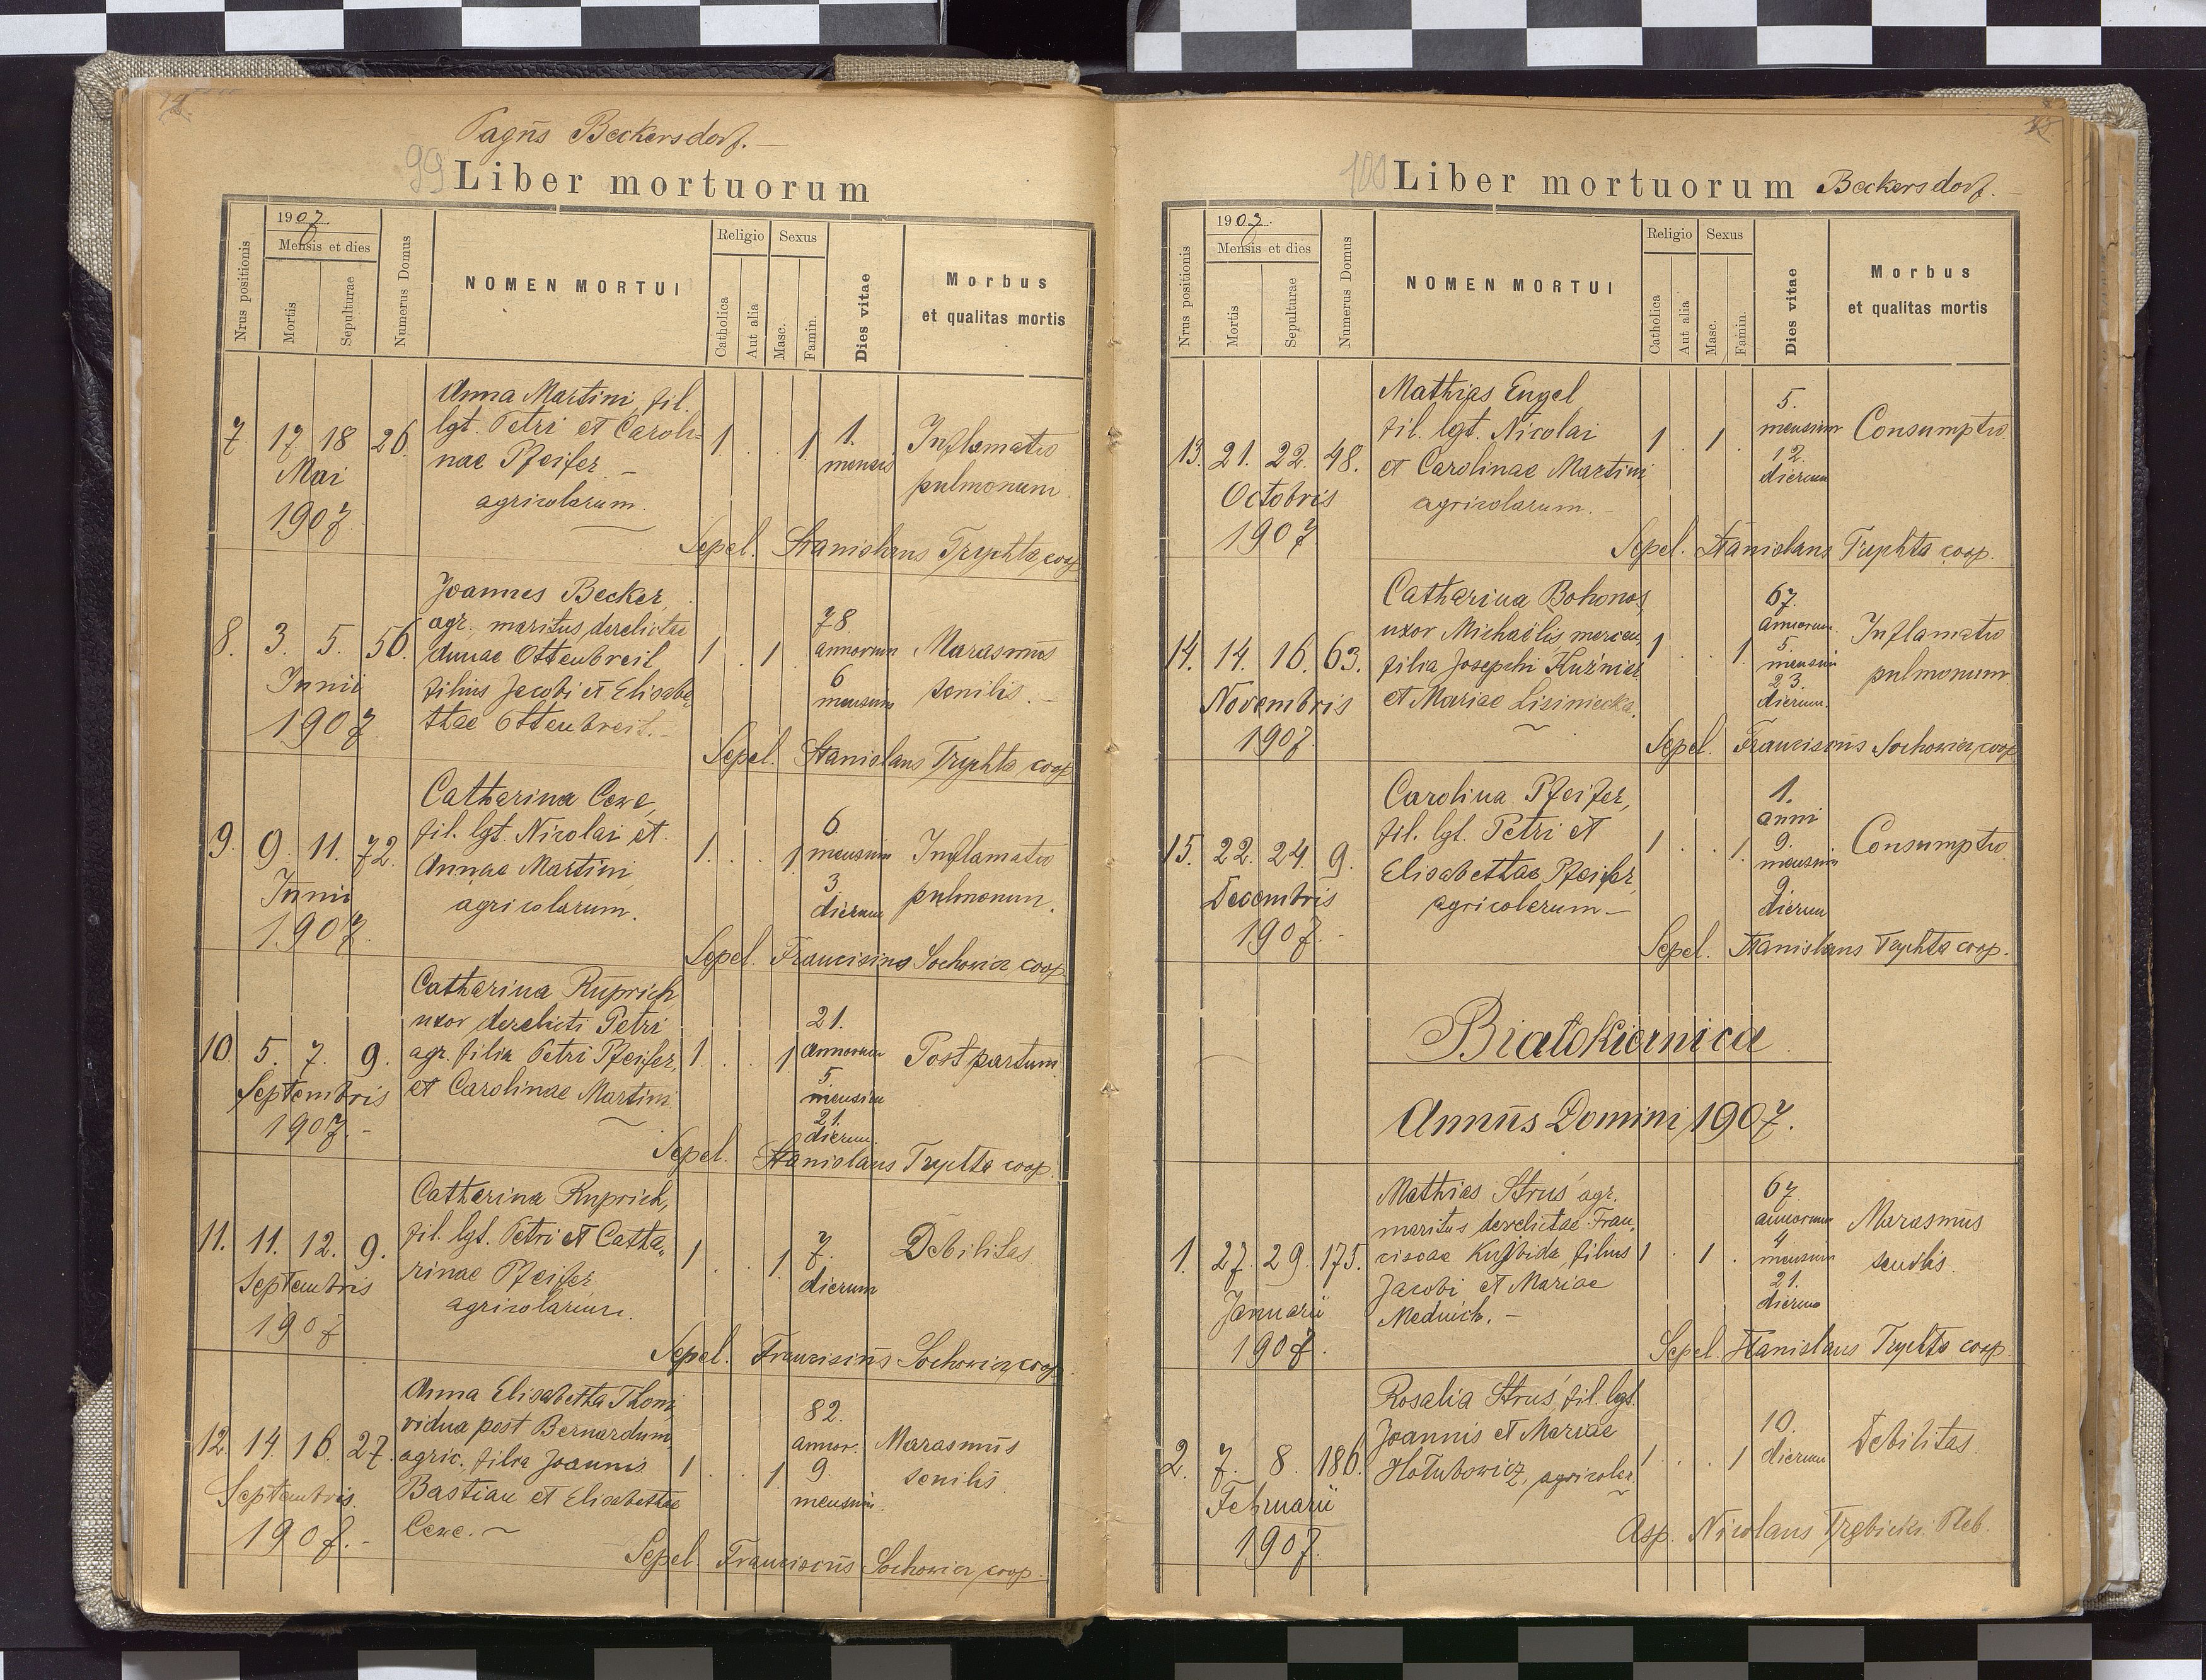 Pagus Beckersdorf.
99 Liber mortuorum
Nrus positionis
1907.
Mensis et dies
Mortis
Sepulturae
Numerus Domus
NOMEN MORTUI
Religio
Catholica
Aut alia
Sexus
Masc.
Famin.
Dies vitae
Morbus
et qualitas mortis
Anna Martini, fil.
lgt. Petri et Caroli-
nae Pfeifer –
agricolarum.
7 17 18 26. 1 . . 1
Mai
1907.
1.
mensis
Inflamatio
pulmonum.
Sepel. Stanislaus Trychta, coop
Joannes Becker,
agr. maritus derelictae
Annae Ottenbreit,
filius Jacobi et Elisabe-
thae Ottenbreit. –
8. 3. 5. 56. 1 . 1 .
Junii
1907
78
annorum
6
mensium
Marasmus
senilis. –
Sepel. Stanislaus Trychta coop
Catharina Cewe,
fil. lgt. Nicolai et
Annae Martini,
agricolarum.
9. 9. 11. 72. 1. . . 1
Junii
1907.
6.
mensium
3
dierum
Inflamatio
pulmonum.
Sepel. Franciscus Sochowicz coop
Catharina Ruprich
uxor derelicti Petri
agr. filia Petri Pfeifer,
et Carolinae Martini.
10. 5. 7. 9. 1. . . 1
Septembris
1907. –
21.
Annorum
5.
mensium
21.
dierum.
Post partum
Sepel. Stanislaus Trychta coop.
Catharina Ruprich,
fil. lgt. Petri et Catha-
rinae Pfeifer
agricolarum.
11. 11. 12. 9. 1 . . 1.
Septembris
1907
7.
dierum
Debilitas.
Sepel. Franciscus Sochowicz coop.
Anna Elisabetha Thom,
vidua post Bernardum,
agric. filia Joannis
Bastian et Elisabethae
Cewe. ~
12. 14. 16. 27. 1 . . 1.
Septembris.
1907. –
82.
annor.
9.
mensium.
Marasmus
senilis
Sepel. Franciscus Sochowicz coop.
100 Liber mortuorum Beckersdorf. –
Nrus positionis
1907.
Mensis et dies
Mortis
Sepulturae
Numerus Domus
NOMEN MORTUI
Religio
Catholica
Aut alia
Sexus
Masc.
Famin.
Dies vitae
Morbus
et qualitas mortis
Mathias Engel
fil. lgt. Nicolai
et Carolinae Martini
agricolarum. –
13. 21. 22. 48. 1 . 1 .
Octobris
1907
5.
mensium
12.
dierum
Consumptio.
Sepel. Stanislaus Trychta coop.
Catharina Bohonos,
uxor Michaëlis mercen.
filia Josephi Kuźniar
et Mariae Lisiniecka.
14. 14. 16. 63. 1 . . 1.
Novembris
1907.
67.
Annorum.
5.
mensium
23.
dierum.
Inflamatio
pulmonum.
Sepel. Franciscus Sochowicz coop
Carolina Pfeifer,
fil. lgt. Petri et
Elisabethae Pfeifer,
agricolarum –
15. 22. 24. 9. 1 . . 1.
Decembris
1907. –
1.
anni
9.
mensium
9.
dierum
Consumptio.
Sepel. Stanislaus Trychta coop.
Białokiernica
Annus Domini 1907.
Mathias Struś agr.
maritus derelictae Fran-
ciscae Kujbida, filius
Jacobi et Mariae
Mednich. –
1. 27. 29. 175. 1 . 1 .
Januarii
1907.
67
annorum
4
mensium
21.
dierum
Marasmus
senilis.
Sepel. Stanislaus Trychta coop.
Rosalia Struś, fil. lgt.
Joannis et Mariae
Hołubowicz, agricolar.
2. 7. 8. 186. 1 . . 1
Februarii
1907.
10.
dierum
Debilitas.
Asp. Nicolaus Trzbicki Pleb.